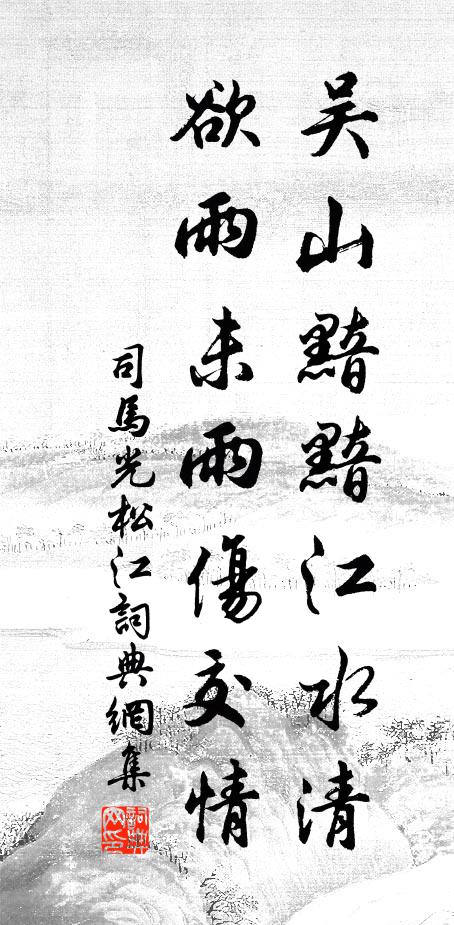 吴山黯黯江水清
欲雨未雨傷交情
司馬光松江詞典網集